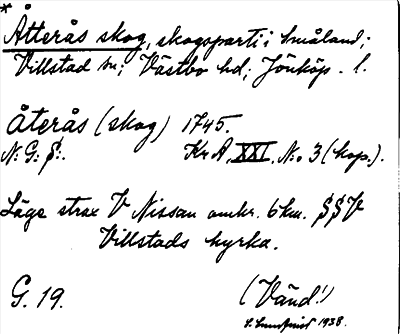 *
Åtterås skog, skogsparti i Småland;
Villstad sn; Västbo hd; Jönköp. l.
Återås (skog) 1745.
N: G: S:. Kr A. XXI. N:o 3 (kop.).
Läge strax V Nissan omkr. 6 km. SSV
Villstads kyrka.
G. 19. (Vänd!)
1938.